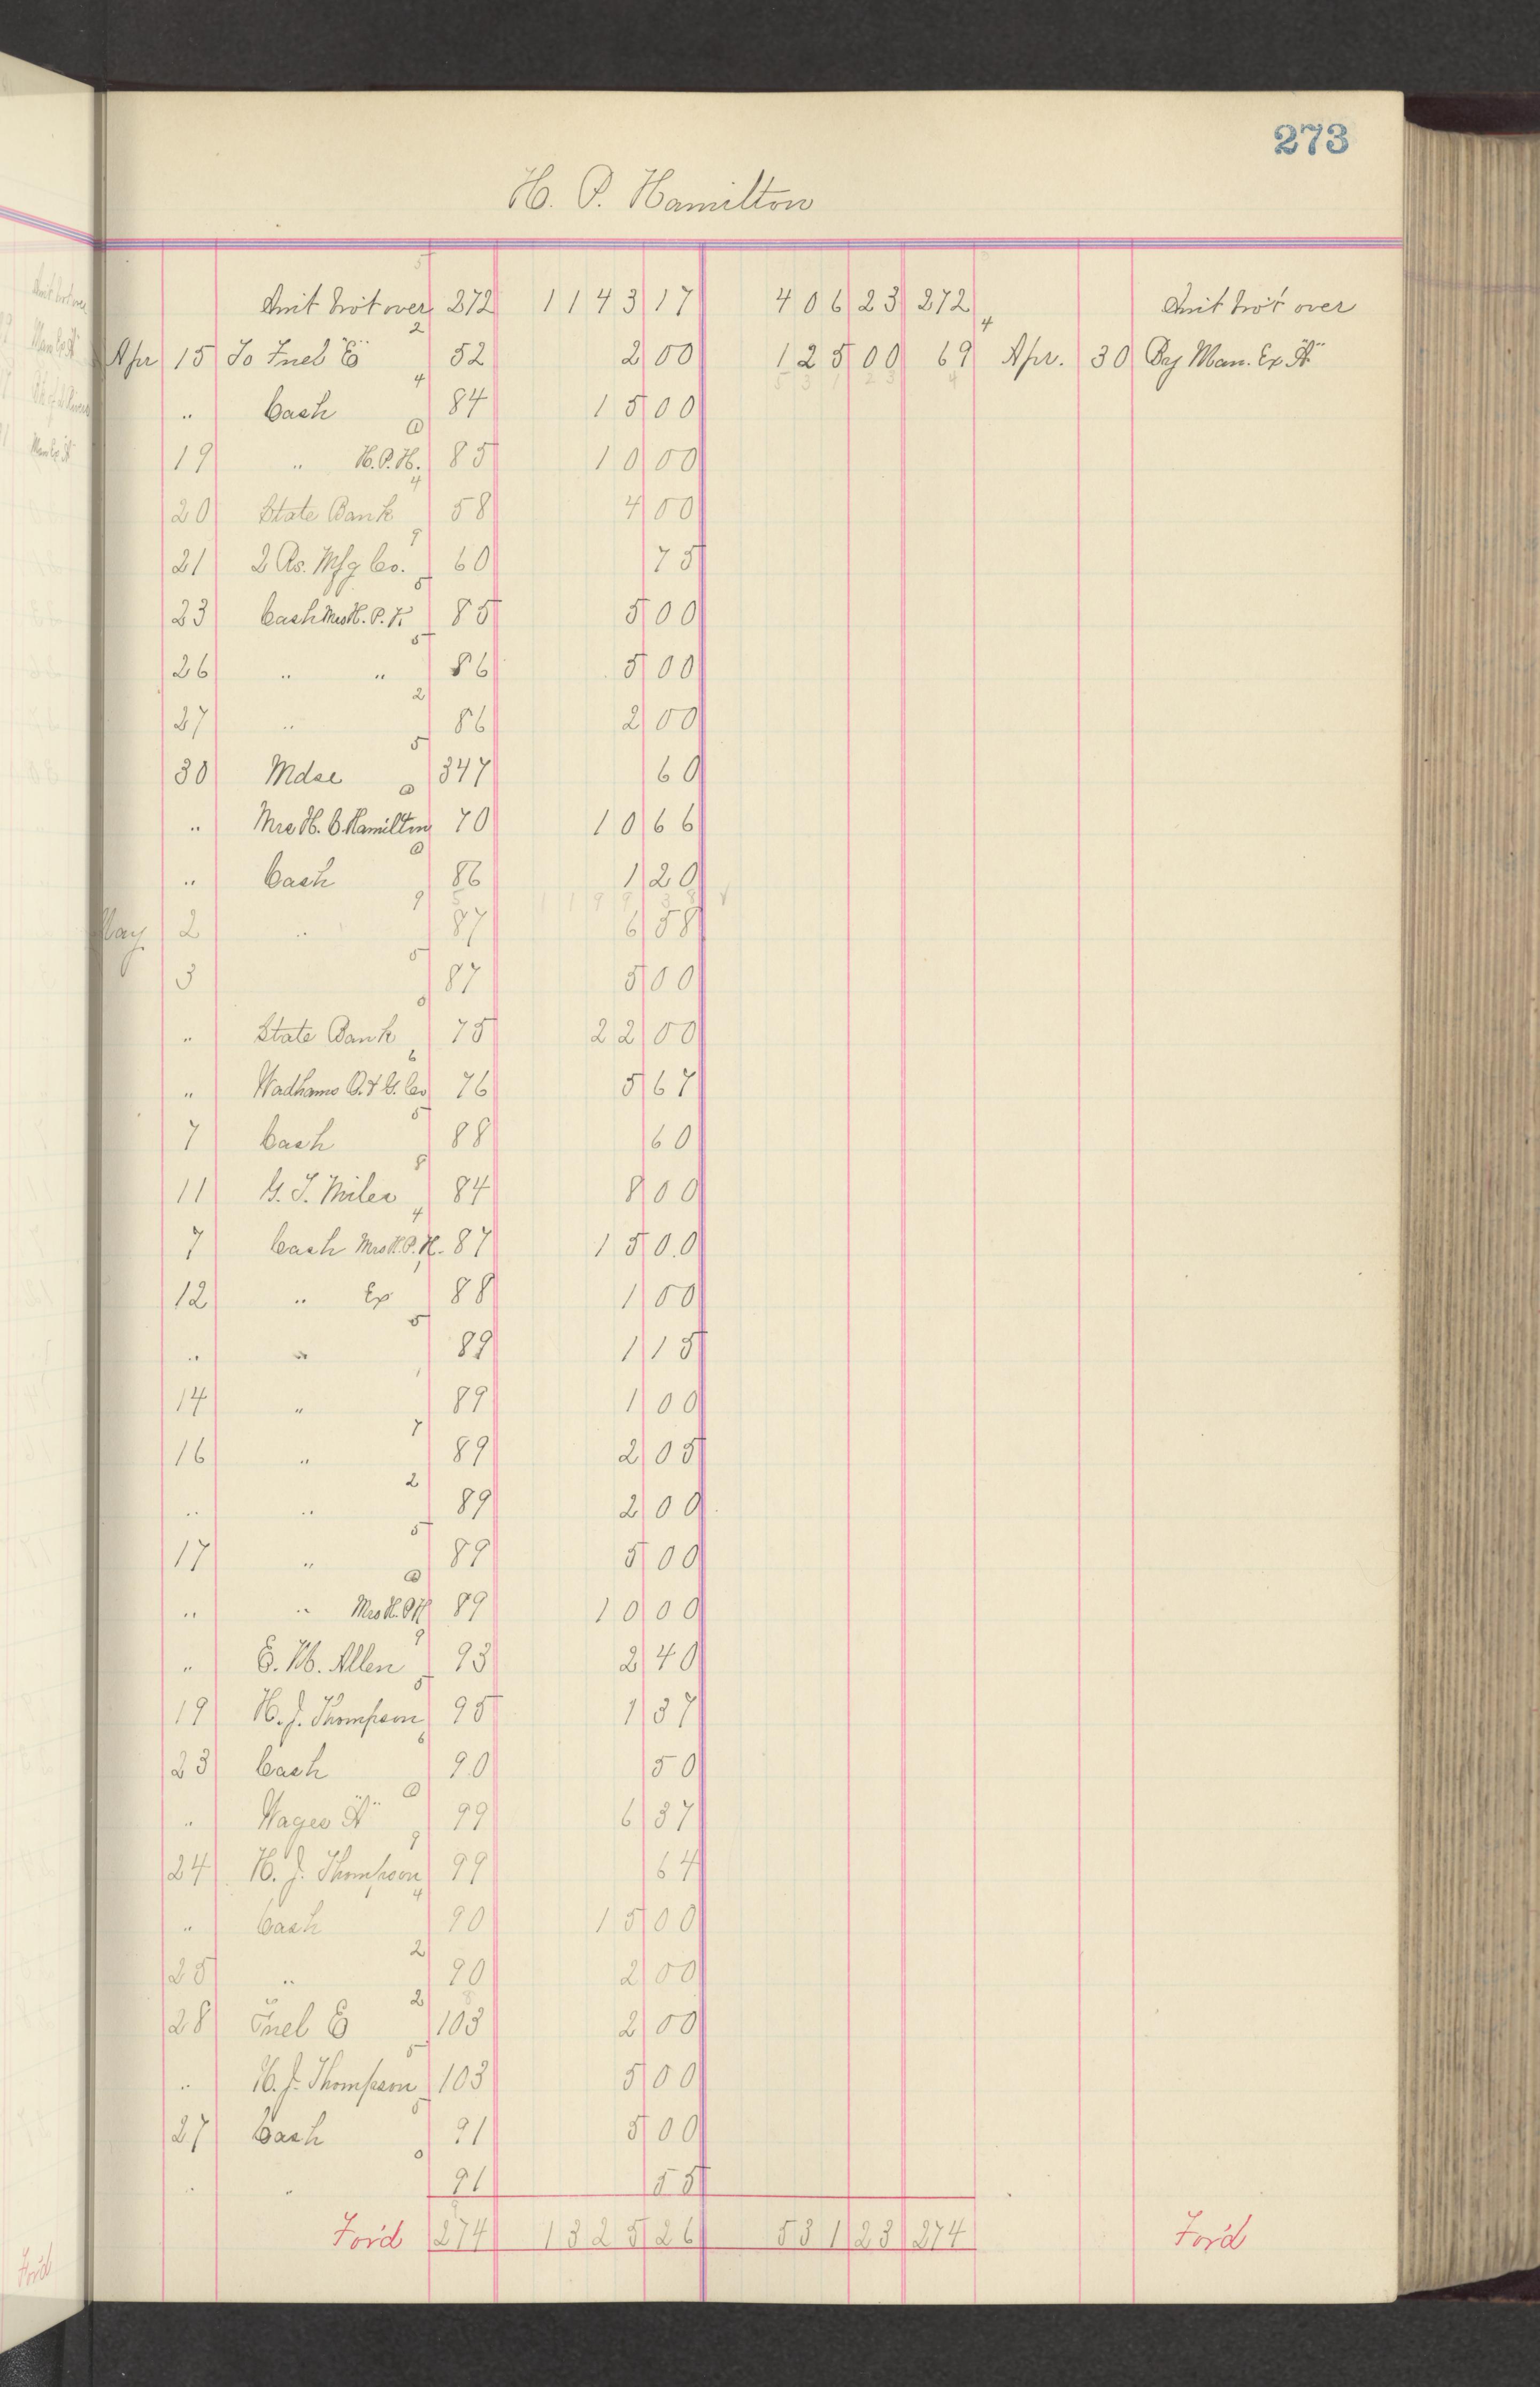 273
H. P. Hamilton
Amt bro't over 272 1143 17 406 23 272 Amt bro't over
Apr 15 To Fuel % 52 2 00 125 00 69 Apr. 30 By Man. Ex %
" Cash 84 15 00
19 " H.P.H. 85 10 00
20 State Bank 58 4 00
21 2 Rs. Mfg Co. 60 75
23 Cash Mrs H. P. H. 85 5 00
26 " " 86 5 00
27 " 86 2 00
30 Mdse 347 60
" Mrs H. C. Hamilton 70 10 66
" Cash 86 1 20
May 2 " 87 6 58
3 87 5 00
" State Bank 75 22 00
" Wadhams O. & G. Co 76 5 67
7 Cash 88 60
11 G. T. Miles 84 8 00
7 Cash Mrs H.P.H. 87 15 00
12 " Ex 88 1 00
" " 89 1 15
14 " 89 1 00
16 " 89 2 05
" " 89 2 00
17 " 89 5 00
" " Mrs H.P.H 89 10 00
" E. W. Allen 93 2 40
19 H. J. Thompson 95 1 37
23 Cash 90 50
" Wages % 99 6 37
24 H. J. Thompson 99 64
" Cash 90 15 00
25 " 90 2 00
28 Fuel % 103 2 00
" H. J. Thompson 103 5 00
27 Cash 91 5 00
" " 91 55
For'd 274 1325 26 531 23 274 For'd